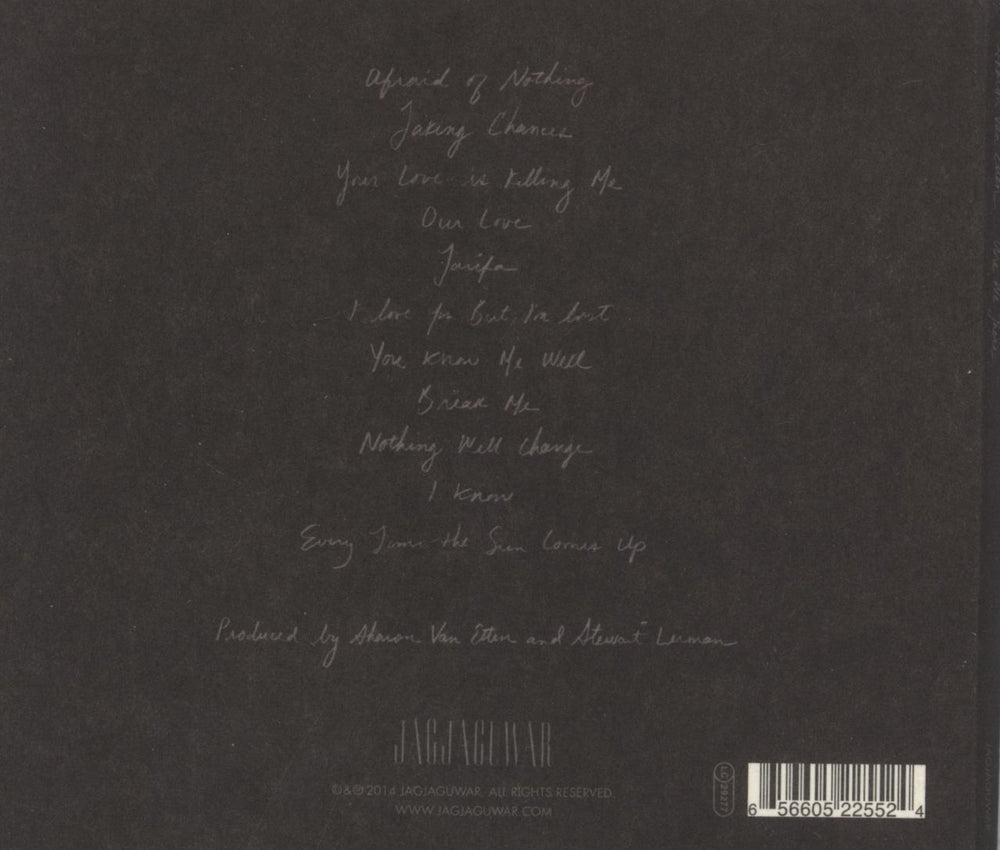 Afraid of Nothing
Taking Chances
Your Love is Killing Me
Our Love
Tarifa
I love you But I'm lost
You Know Me Well
Break Me
Nothing Will Change
I Know
Every Time the Sun Comes Up
Produced by Sharon Van Etten and Stewart Lerman
JAGJAGUWAR
©&℗ 2014 JAGJAGUWAR. ALL RIGHTS RESERVED.
WWW.JAGJAGUWAR.COM
LC 29277
6 56605 22552 4